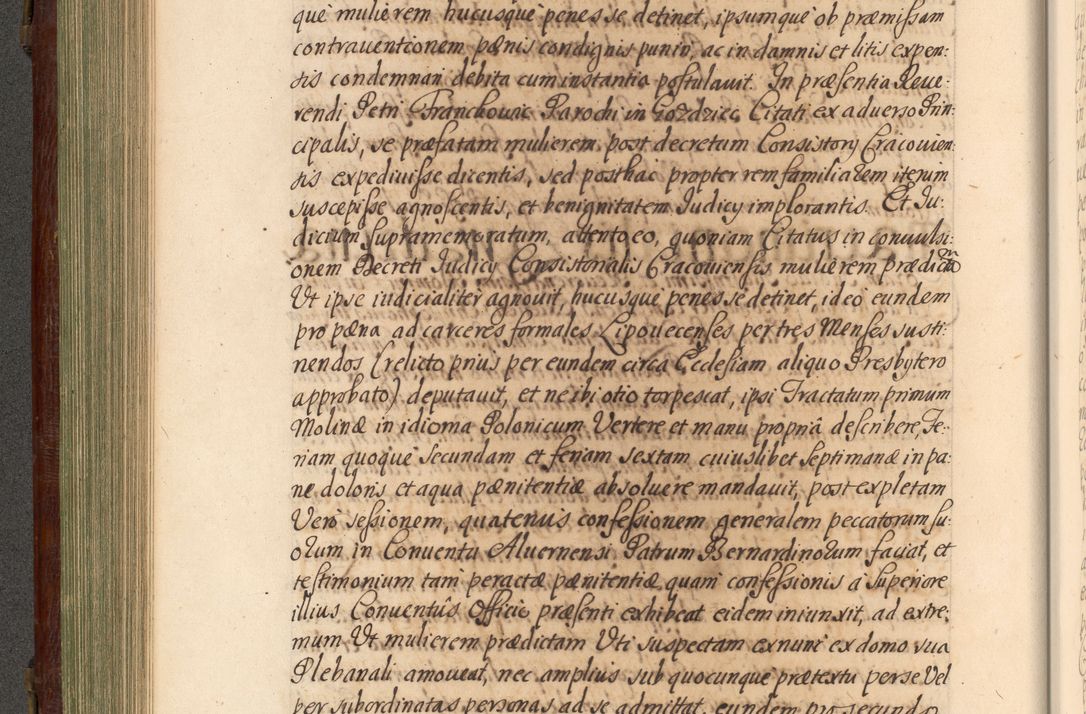 què mulierem hucusquè penes se detinet, ipsumquè ob præmissam
contrauentionem pænis condignis puniri, ac in damnis et litis expen:
sis condemnari debita cum instantia postulauit. In præsentia Reue:
rendi Petri Franckowic Parochi in Gozdziec Citati ex aduerso Prin:
cipalis, se præfatam mulierem post decretum Consistorij Cracouien:
sis expediuisse dicentis, sed posthac propter rem familiarem iterum
suscepisse agnoscentis, et benignitatem Judicij implorantis. Et Ju:
dicium supramemoratum, attento eo, quoniam Citatus in conuulsi:
onem Decreti Judicij Consistorialis Cracouiensis mulierem prædictam
Ut ipse iudicialiter agnouit, hucusquè penes se detinet, ideò eundem
pro pæna ad carceres formales Lipouecenses per tres Menses susti:
nendos (relicto prius per eundem circa Ecclesiam aliquo Presbytero
approbato) deputauit, et ne ibi otio torpescat, ipsi Tractatum primum
Molinæ in idioma Polonicum Vertere et manu propriâ describere, Fe:
riam quoquè secundam et feriam sextam cuiuslibet septimanæ in pa:
ne doloris et aqua pænitentiæ absoluere mandauit, post expletam
Verò sessionem, quatenus confessionem generalem peccatorum su:
orum in Conuentu Aluernensi Patrum Bernardinorum faciat, et
testimonium tam peractæ pænitentiæ quam confessionis à Superiore
illius Conuentûs Officio præsenti exhibeat eidem iniunxit, ad extre:
mum Ut mulierem prædictam Uti suspectam ex nunc ex domo sua
Plebanali amoueat, nec amplius sub quocunquè prætextu per se Vel
per subordinatas personas ad se admittat, eundem pro secundo